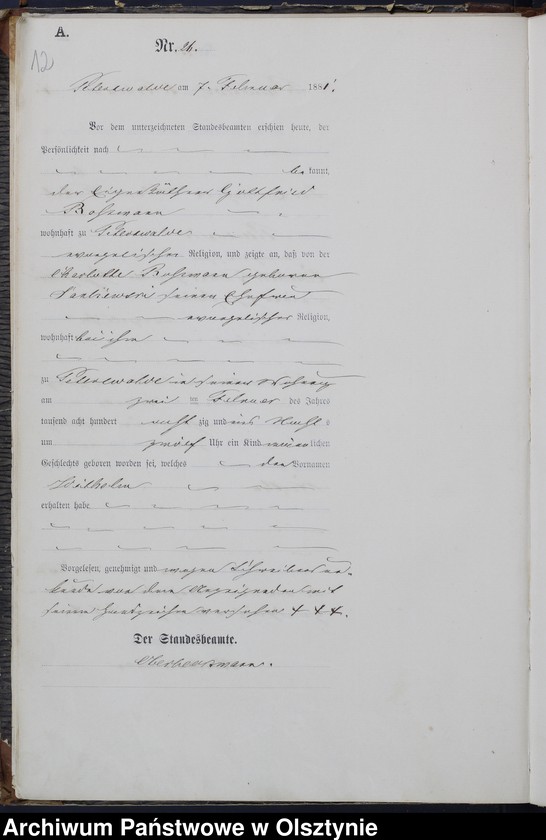 A.
12
Nr. 26.
am 7. Februar 1881.
Vor dem unterzeichneten Standesbeamten erschien heute, der
Persönlichkeit nach
bekannt,
der Eigenkäthner Gottfried
wohnhaft zu Peterswalde
evangelischer Religion, und zeigte an, daß von der
Charlotte geborenen
seiner Ehefrau
evangelischer Religion,
wohnhaft bei ihm
zu Peterswalde in seiner Wohnung
am zwei ten Februar des Jahres
tausend acht hundert acht zig und eins Nachts
um zwölf Uhr ein Kind männlichen
Geschlechts geboren worden sei, welches den Vornamen
Wilhelm
erhalten habe.
Vorgelesen, genehmigt und wegen Schreibensun-
kunde von dem Anzeigenden mit
seinem Handzeichen versehen + + +.
Der Standesbeamte.
Archiwum Państwowe w Olsztynie